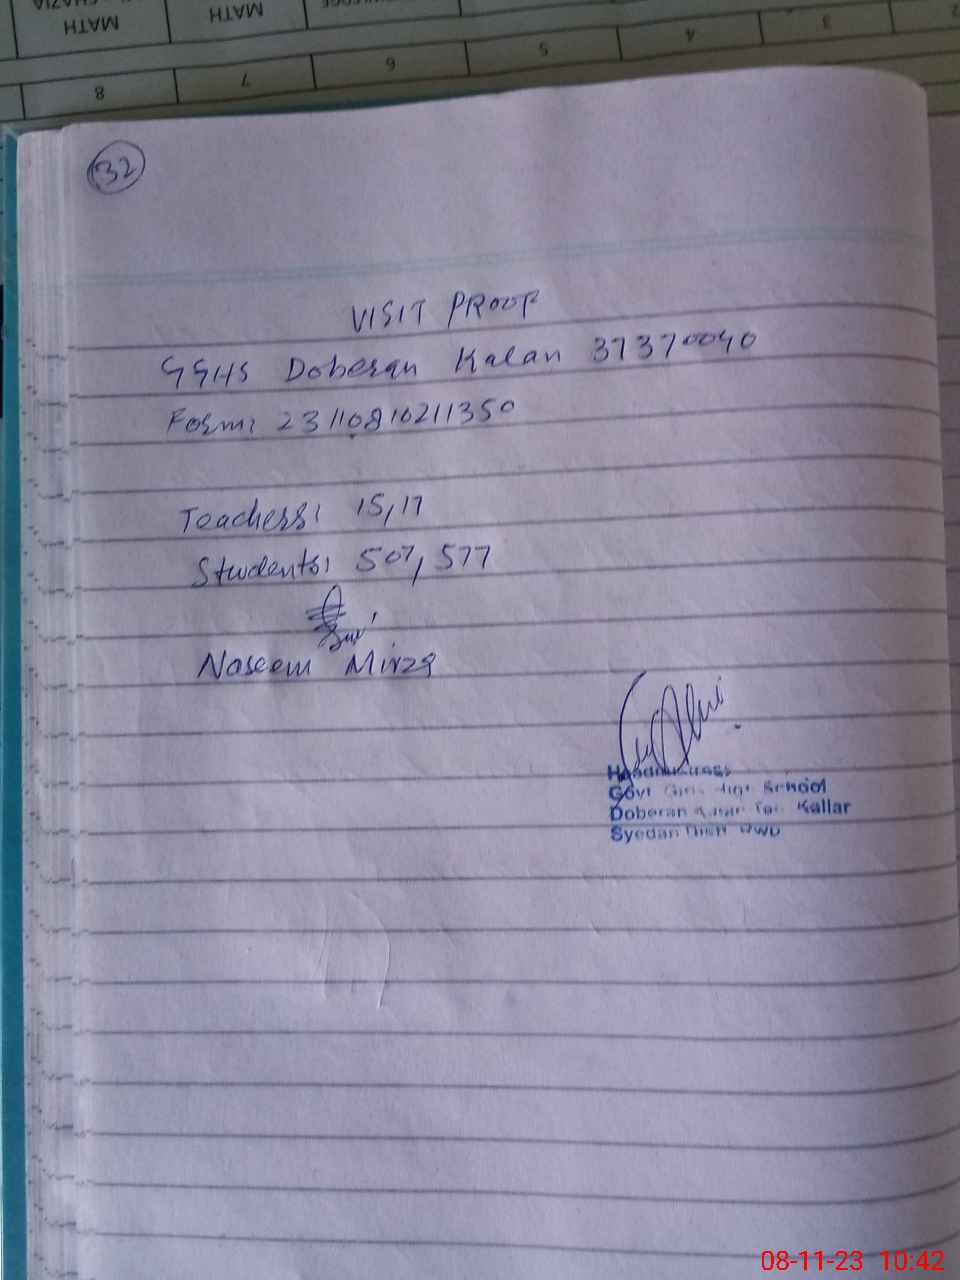 MATH
MATH
8 7 6 5 4 3 2
32
VISIT PROOF
GGHS Doberan Kalan 37370040
Form: 23110810211350
Teachers: 15, 17
Students: 507, 577
Naseem Mirza
Headmistress
Govt Girls High School
Doberan Kalan Teh. Kallar
Syedan Distt RWD
08-11-23 10:42